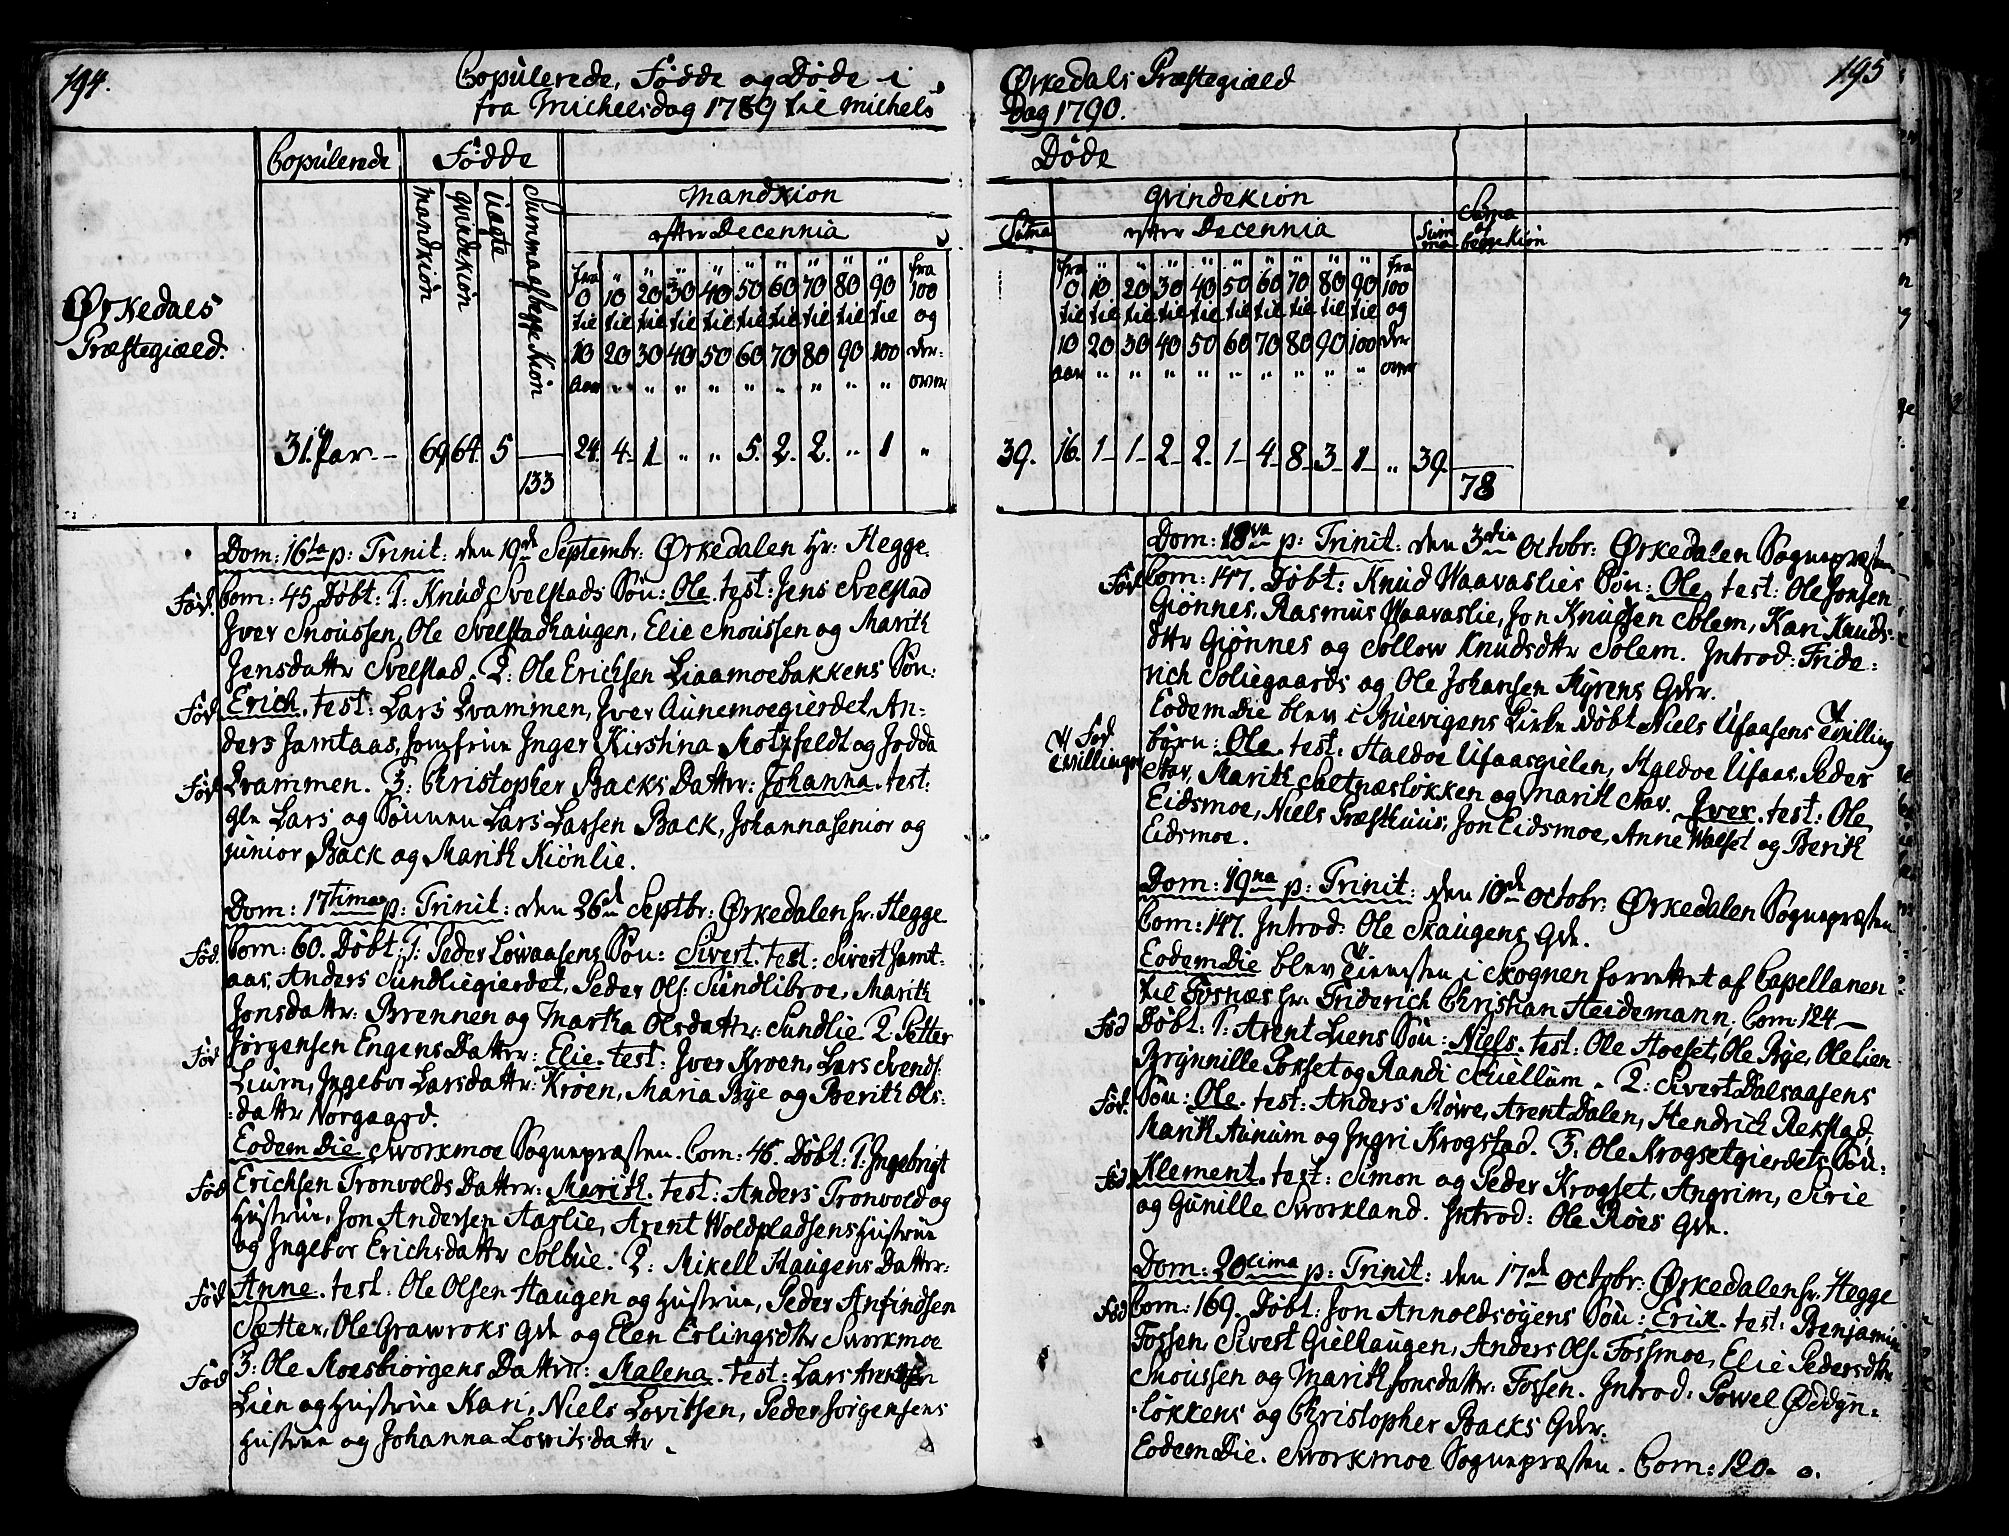 194.
Copulerede, Fødde og Døde i
fra Michelsdag 1789 til Michels
Ørkedals Præstegiæld
Dag 1790.
195
Copulerede
Fødde
Døde
Mandkiøn
Qvindekiøn
Mandkiøn
Qvindekiøn
Uægte
Summa af begge Kiøn
efter Decennia
Suma
efter Decennia
Sum
ma
Suma
af
begge Kiøn
fra 0 til 10 aar
10 til 20
20 til 30
30 til 40
40 til 50
50 til 60
60 til 70
70 til 80
80 til 90
90 til 100
fra 100 og der- over
fra 0 til 10 aar
10 til 20
20 til 30
30 til 40
40 til 50
50 til 60
60 til 70
70 til 80
80 til 90
90 til 100
fra 100 og der over
Ørkedals
Præstegiæld.
31. Par.
69 64. 5
133
24. 4. 1 " " 5. 2. 2. " 1 "
39. 16. 1 1 2 2. 1 4 8 3 1 " 39.
78
Dom: 16ta p: Trinit: den 19de Septembr: Ørkedalen Hr: Hegge.
Fød. Com: 45. Døbt: 1: Knud Svelstads Søn: Ole. test: Jens Svelstad
Iver Snoussen, Ole Svelstadhaugen, Elie Snoussen og Marith
Jensdattr Svelstad. 2: Ole Erichsen Liaamoebakkens Søn:
Fød Erich. test: Lars Qvammen, Iver Aunemoegierdet, An-
ders Jamtaas, Jomfrue Inger Kirstina Motzfeldt og Jodda
Fød Qvammen. 3: Christopher Backs Dattr: Johanna. test:
Gle Lars og Sønnen Lars Larsen Back, Johanna senior og
junior Back og Marith Kiønlie.
Dom: 17tima p: Trinit: den 26de Septbr: Ørkedalen hr: Hegge
Fød. Com: 60. Døbt: 1: Peder Lowaasens Søn: Sivert. test: Sivert Jamt-
aas, Anders Sundliegierdet, Peder Ols: Sundlibroe, Marith
Jonsdattr: Brennen og Martha Olsdattr: Sundlie 2: Petter
Fød Jørgensen Engens Dattr: Elie. test: Iver Kroen, Lars Svends:
Lium, Ingebor Larsdattr: Krøen, Maria Bye og Berith Ols:
dattr Norgaard.
Eodem Die Sworkmoe Sognepræsten. Com: 46. Døbt: 1: Ingebrigt
Fød Erichsen Tronvolds Dattr: Marith. test: Anders Tronvold og
Hustrue, Jon Andersen Aarlie, Arent Woldpladsens Hustrue
og Ingebor Erichsdattr Solbue. 2: Mikell Haugens Dattr:
Fød Anne. test: Ole Olsen Haugen og Hustrue, Peder Anfindsen
Sætter, Ole Grawroks Qde og Elen Eslingsdttr Sworkmoe
Fød 3: Ole Moesbiørgens Dattr: Malena. test: Lars Arentsen
Lien og Hustrue Kari, Niels Lovitsen, Peder Jørgensens
Hustrue og Johanna Lowitsdattr.
Dom: 18va p: Trinit: den 3die Octobr: Ørkedalen Sognepræsten
Fød Com: 147. Døbt: Knud Waavaslies Søn: Ole, test: Ole Jonsen
Giønnes, Rasmus Waavaslie, Jon Knudsen Solem, Kari Knuds-
dttr Giønnes og Sollow Knudsdttr Solem. Introd: Fride-
rich Soliegaards og Ole Johansen Styrens Qdr.
Eodem Die blev i Buevigens Kirke Døbt Niels Ufaasens Tvilling
Fød Tvillinger børn: Ole. test: Haldoe Ufaasgielen, Haldoe Ufaas, Peder
Stav, Marith Saltnæsløkken og Marith Stav. Iver. test: Ole
Eidsmoe, Niels Præsthuus, Jon Eidsmoe, Anne Walset og Berith
Eidsmoe.
Dom: 19na p: Trinit: den 10de Octobr: Ørkedalen Sognepræsten
Com: 147. Introd: Ole Skaugens Qde.
Eodem Die blev Tienesten i Skognen forrettet af Capellanen
til Fosnæs hr. Friderich Christian Heidemann. Com: 124
Fød Døbt: 1: Arent Liens Søn: Niels. test: Ole Hoeset, Ole Bye, Ole Lien
Brynnille Pokset og Randi Skuellum. 2: Sivert Dalsaasens
Fød. Søn: Ole. test: Anders Møwe, Arent Dalen, Hendrich Rekstad,
Marith Aunum og Ingri Krogstad. 3: Ole Krogsetgierdets Søn:
Fød Klement. test: Simon og Peder Krogset, Angrim, Sirie
og Gunille Sworkland. Introd: Ole Røes Qde.
Dom: 20cima p: Trinit: den 17de Octobr: Ørkedalen hr. Hegge
Fød Com: 169. Døbt: Jon Annoldsøyens Søn: Erik. test: Benjamin
Fossen, Sivert Gielhaugen, Anders Ols: Fossmoe, Elie Pedersdttr
Snoussen og Marith Jonsdattr: Fossen. Introd: Powel Øddyn-
løkkens og Christopher Backs Qdr.
Eodem Die. Sworkmoe Sognepræsten. Com: 120.